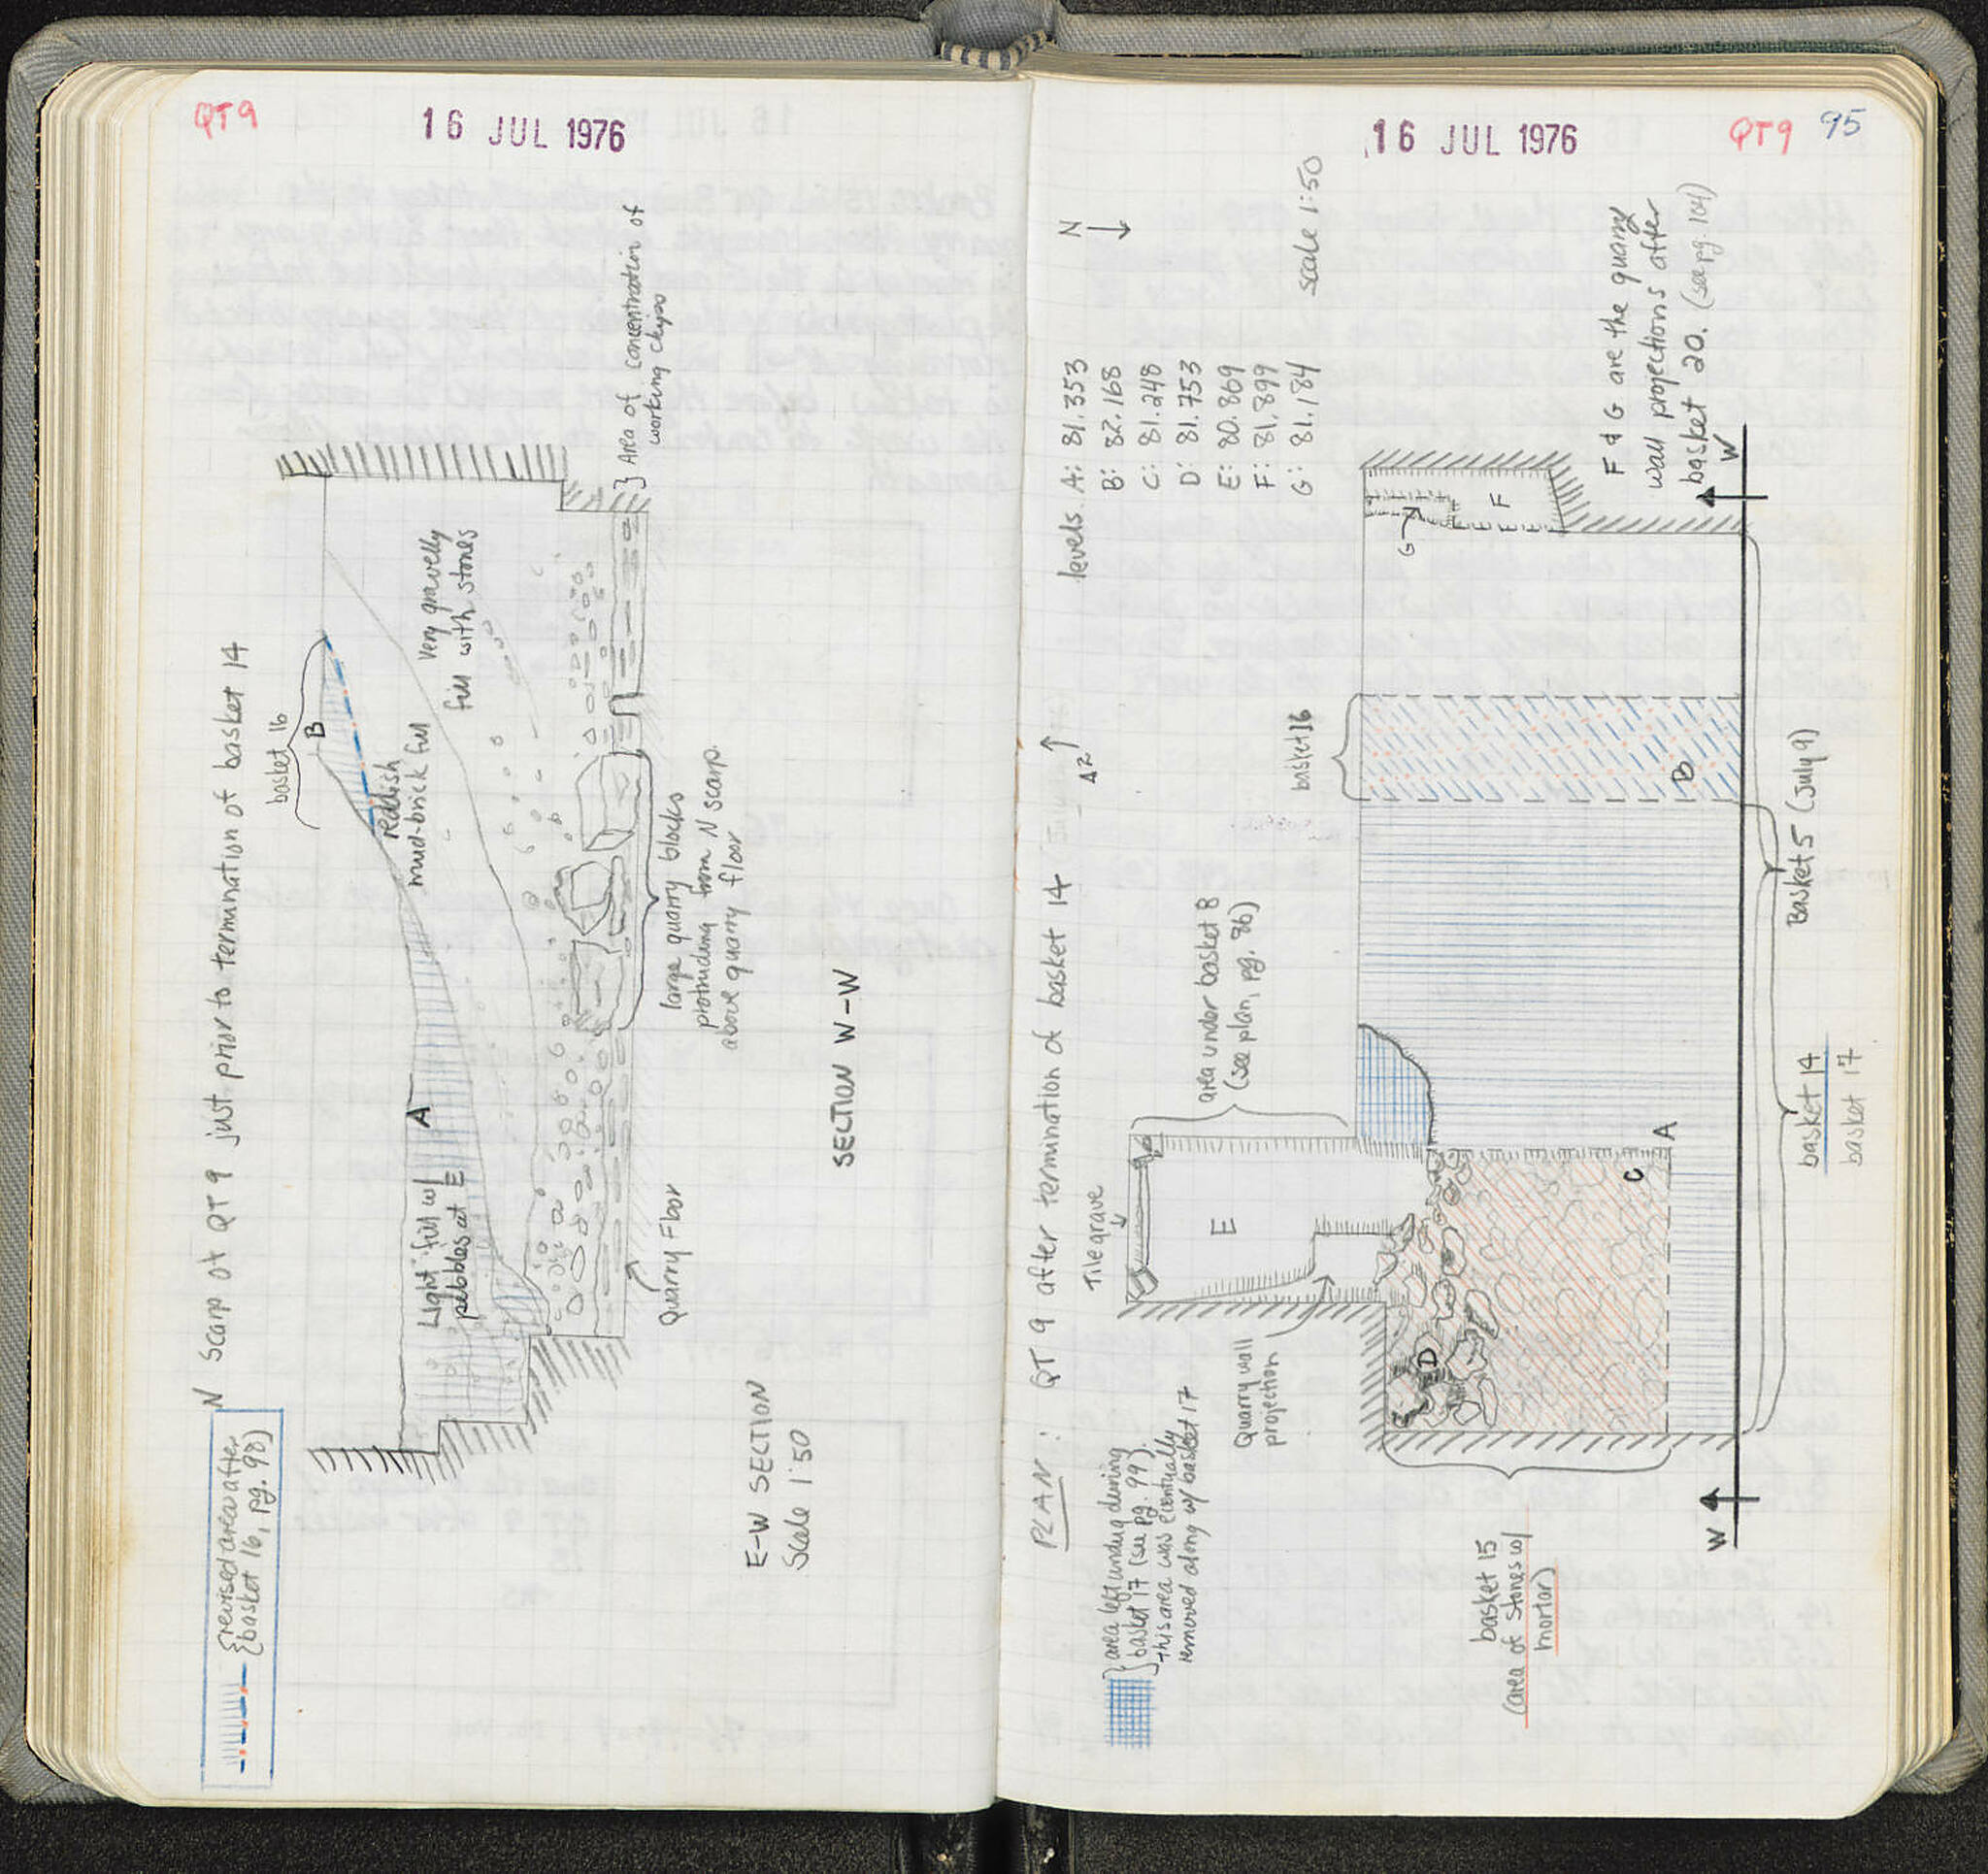 QT9
16 JUL 1976
N Scarp of QT 9 just prior to termination of basket 14
revised area after
basket 16, pg. 98)
basket 16
B
Reddish
mud-brick fill
Very gravelly
fill with stones
Area of concentration of
working chips
A
Light fill w/
pebbles at E
large quarry blocks
protruding from N scarp
above quarry floor
Quarry Floor
SECTION W-W
E-W SECTION
Scale 1:50
16 JUL 1976
QT9 95
PLAN: QT 9 after termination of basket 14
N
levels A: 81.353
B: 82.168
C: 81.248
D: 81.753
E: 80.869
F: 81.899
G: 81.184
scale 1:50
F & G are the quarry
wall projections after
basket 20. (see pg. 104)
area left undug during
basket 17 (see pg. 99).
this area was eventually
removed along w/ basket 17
Tile grave
area under basket 8
(see plan, pg. 86)
basket 16
G
F
E
Quarry wall
projection
D
C
A
B
basket 15
(area of stones w/
mortar)
W
W
Basket 5 (July 9)
basket 14
basket 17